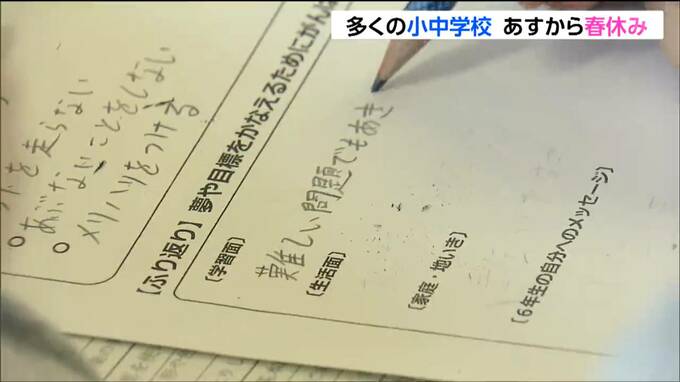 多くの小中学校 あすから春休み
を走らない
○あぶないことをしない
○メリハリをつける
【ふり返り】夢や目標をかなえるためにがんば
〔学習面〕
難しい問題でもあき
〔生活面〕
〔家庭・地いき〕
〔6年生の自分へのメッセージ〕